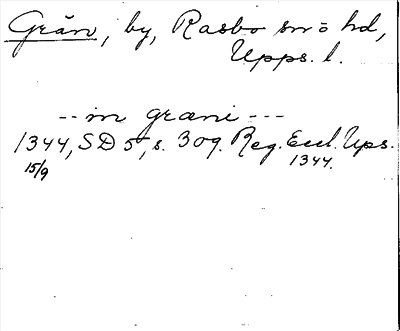 Grän, by, Rasbo sn o hd,
Upps. l.
-- in græni ---
1344, SD 5, s. 309. Reg. Eccl. Ups.
15/9
1344.